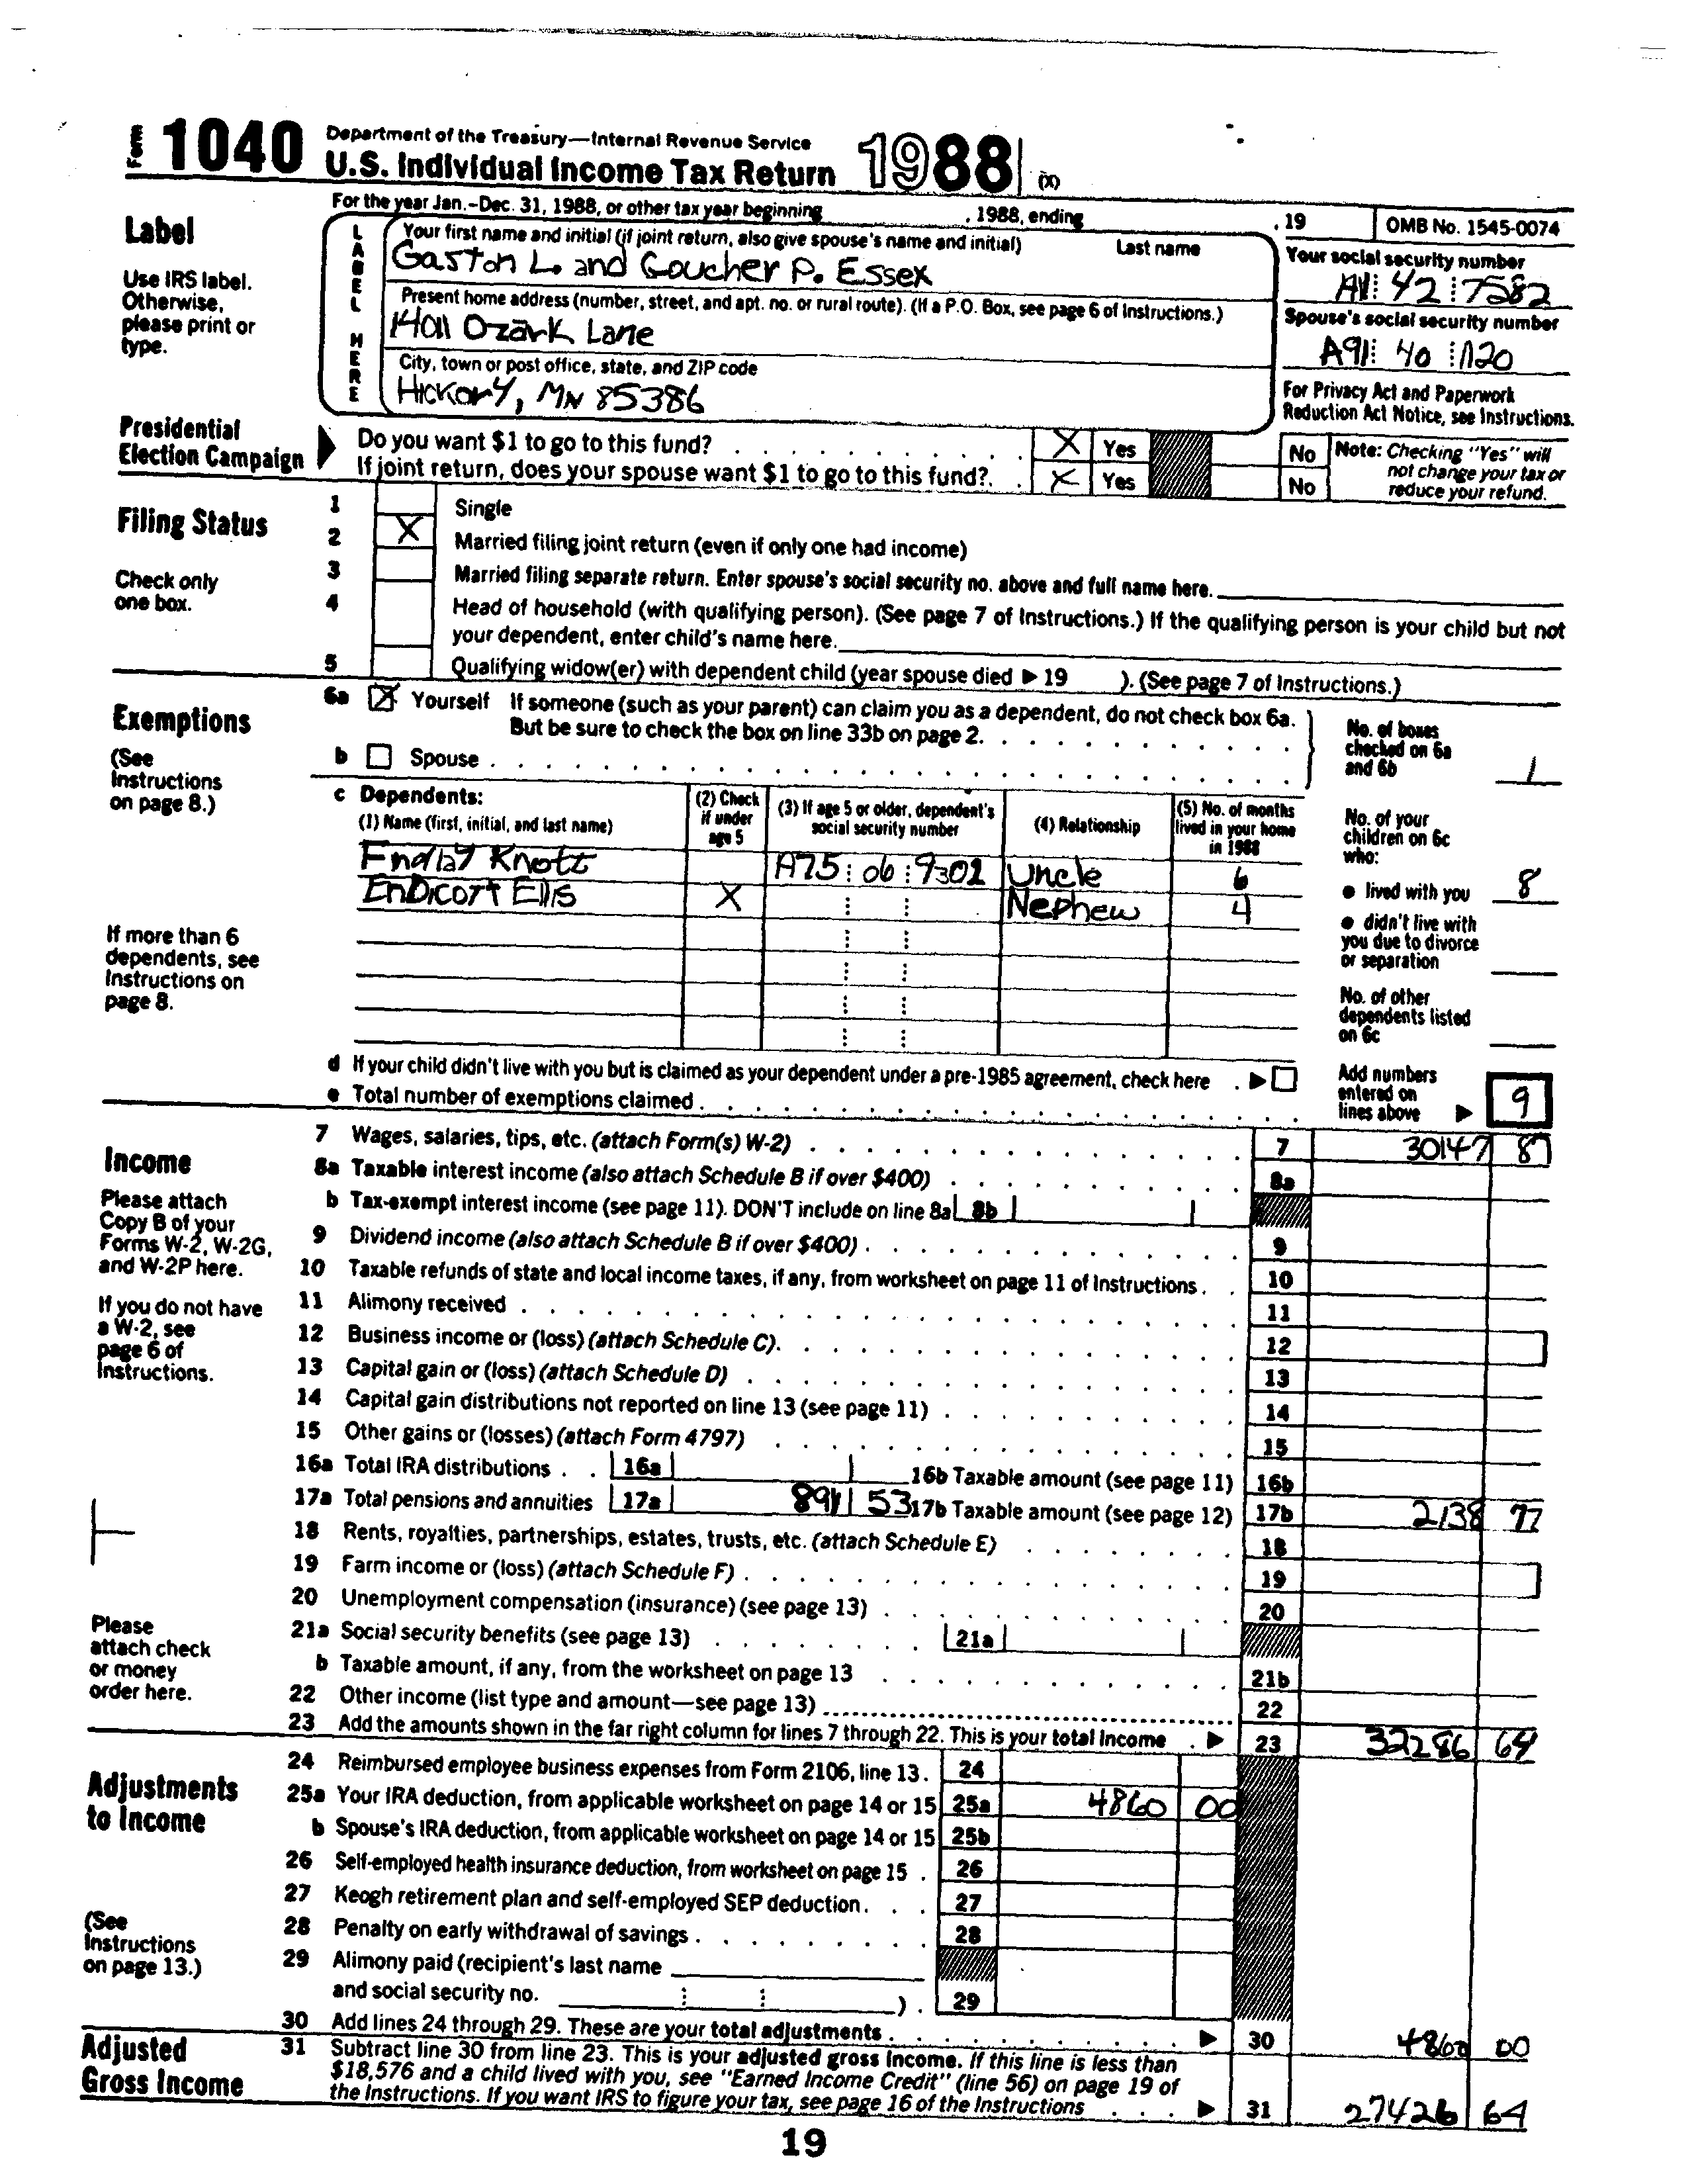 Form 1040 Department of the Treasury—Internal Revenue Service
U.S. Individual Income Tax Return 1988 (X)
For the year Jan.-Dec. 31, 1988, or other tax year beginning , 1988, ending , 19 OMB No. 1545-0074
Label
Use IRS label. Otherwise, please print or type.
LABEL HERE
Your first name and initial (if joint return, also give spouse's name and initial) Last name
Gaston L. and Goucher P. Essex
Your social security number
42 7582
Present home address (number, street, and apt. no. or rural route). (If a P.O. Box, see page 6 of Instructions.)
Ozark Lane
Spouse's social security number
A91 40 1120
City, town or post office, state, and ZIP code
Hickory, MN 85386
For Privacy Act and Paperwork Reduction Act Notice, see Instructions.
Presidential Election Campaign
Do you want $1 to go to this fund? X Yes No
If joint return, does your spouse want $1 to go to this fund? X Yes No
Note: Checking "Yes" will not change your tax or reduce your refund.
Filing Status
Check only one box.
1 Single
2 X Married filing joint return (even if only one had income)
3 Married filing separate return. Enter spouse's social security no. above and full name here.
4 Head of household (with qualifying person). (See page 7 of Instructions.) If the qualifying person is your child but not
your dependent, enter child's name here.
5 Qualifying widow(er) with dependent child (year spouse died ▶ 19 ). (See page 7 of Instructions.)
Exemptions
(See Instructions on page 8.)
6a X Yourself If someone (such as your parent) can claim you as a dependent, do not check box 6a.
But be sure to check the box on line 33b on page 2.
b Spouse
No. of boxes checked on 6a and 6b 1
c Dependents:
(1) Name (first, initial, and last name) (2) Check if under age 5 (3) If age 5 or older, dependent's social security number (4) Relationship (5) No. of months lived in your home in 1988
Findlay Knott A75 06 9302 Uncle 6
Endicott Ellis X Nephew 4
No. of your children on 6c who:
● lived with you 8
● didn't live with you due to divorce or separation
No. of other dependents listed on 6c
If more than 6 dependents, see Instructions on page 8.
d If your child didn't live with you but is claimed as your dependent under a pre-1985 agreement, check here ▶
e Total number of exemptions claimed
Add numbers entered on lines above ▶ 9
Income
Please attach Copy B of your Forms W-2, W-2G, and W-2P here.
If you do not have a W-2, see page 6 of Instructions.
Please attach check or money order here.
7 Wages, salaries, tips, etc. (attach Form(s) W-2) 7 30147 87
8a Taxable interest income (also attach Schedule B if over $400) 8a
b Tax-exempt interest income (see page 11). DON'T include on line 8a 8b
9 Dividend income (also attach Schedule B if over $400) 9
10 Taxable refunds of state and local income taxes, if any, from worksheet on page 11 of Instructions 10
11 Alimony received 11
12 Business income or (loss) (attach Schedule C) 12
13 Capital gain or (loss) (attach Schedule D) 13
14 Capital gain distributions not reported on line 13 (see page 11) 14
15 Other gains or (losses) (attach Form 4797) 15
16a Total IRA distributions 16a 16b Taxable amount (see page 11) 16b
17a Total pensions and annuities 17a 53 17b Taxable amount (see page 12) 17b 2138 77
18 Rents, royalties, partnerships, estates, trusts, etc. (attach Schedule E) 18
19 Farm income or (loss) (attach Schedule F) 19
20 Unemployment compensation (insurance) (see page 13) 20
21a Social security benefits (see page 13) 21a
b Taxable amount, if any, from the worksheet on page 13 21b
22 Other income (list type and amount—see page 13) 22
23 Add the amounts shown in the far right column for lines 7 through 22. This is your total income ▶ 23 32286 64
Adjustments to Income
(See Instructions on page 13.)
24 Reimbursed employee business expenses from Form 2106, line 13 24
25a Your IRA deduction, from applicable worksheet on page 14 or 15 25a 4860 00
b Spouse's IRA deduction, from applicable worksheet on page 14 or 15 25b
26 Self-employed health insurance deduction, from worksheet on page 15 26
27 Keogh retirement plan and self-employed SEP deduction 27
28 Penalty on early withdrawal of savings 28
29 Alimony paid (recipient's last name
and social security no. ) 29
30 Add lines 24 through 29. These are your total adjustments ▶ 30 4860 00
Adjusted Gross Income
31 Subtract line 30 from line 23. This is your adjusted gross income. If this line is less than
$18,576 and a child lived with you, see "Earned Income Credit" (line 56) on page 19 of
the Instructions. If you want IRS to figure your tax, see page 16 of the Instructions ▶ 31 27426 64
19